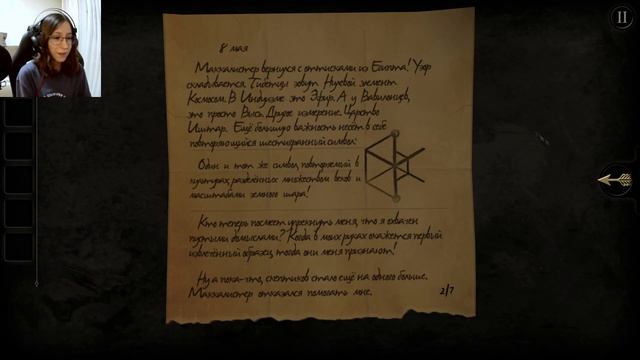 8 мая
Маккалистер вернулся с оттисками из Египта! Узор
складывается. Тибетцы зовут Нулевой элемент
Космосом. В Индуизме это Эфир. А у Вавилонцев,
это просто Высь. Другое измерение. Царство
Иштар. Ещё большую важность несёт в себе
повторяющийся шестигранный символ:
Один и тот же символ, повторяемый в
культурах, разделённых множеством веков и
масштабами земного шара!
Кто теперь посмеет упрекнуть меня, что я охвачен
пустыми домыслами? Когда в моих руках окажется первый
извлечённый образец, тогда они меня признают!
Ну а пока-что, скептиков стало ещё на одного больше.
Маккалистер отказался помогать мне.
2/7